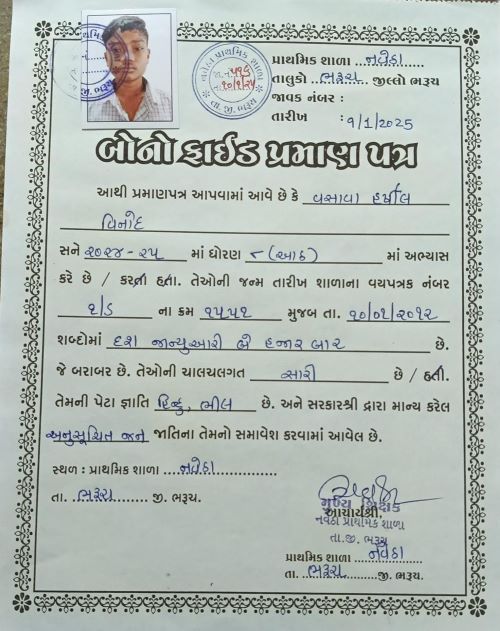 પ્રાથમિક શાળા નવેઠા
તાલુકો ભરૂચ જીલ્લો ભરૂચ
જાવક નંબર :
તારીખ : ૧/1/2025
બોનોફાઈડ પ્રમાણ પત્ર
આથી પ્રમાણપત્ર આપવામાં આવે છે કે વસાવા હર્ષીલ
વિનોદ
સને ૨૦૨૪-૨૫ માં ધોરણ ૮ (આઠ) માં અભ્યાસ
કરે છે / કરતા હતા. તેઓની જન્મ તારીખ શાળાના વયપત્રક નંબર
૧/ડ ના ક્રમ ૧૫૫૧ મુજબ તા. ૧૦/૦૧/૨૦૧૨
શબ્દોમાં દશ જાન્યુઆરી બે હજાર બાર છે.
જે બરાબર છે. તેઓની ચાલચલગત સારી છે / હતી.
તેમની પેટા જ્ઞાતિ હિન્દુ, ભીલ છે. અને સરકારશ્રી દ્વારા માન્ય કરેલ
અનુસૂચિત જન જાતિના તેમનો સમાવેશ કરવામાં આવેલ છે.
સ્થળ : પ્રાથમિક શાળા નવેઠા
તા. ભરૂચ જી. ભરૂચ.
મુખ્ય શિક્ષક
આચાર્યશ્રી,
નવેઠા પ્રાથમિક શાળા
તા.જી. ભરૂચ
પ્રાથમિક શાળા નવેઠા
તા. ભરૂચ જી. ભરૂચ.